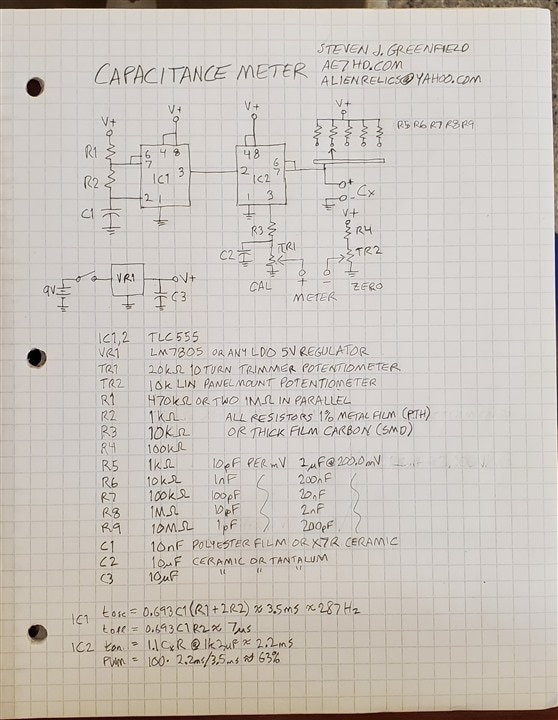 STEVEN J. GREENFIELD
AE7HD.COM
CAPACITANCE METER ALIENRELICS@YAHOO.COM
V+
V+
V+
V+
R5 R6 R7 R8 R9
R1
R2
C1
6
7
2
4 8
3
IC1
1
2
4 8
6
7
IC2
1 3
+
- Cx
V+
R3
R4
C2
TR1
TR2
CAL
+
-
METER
ZERO
9V
VR1
V+
C3
IC1,2 TLC555
VR1 LM7805 OR ANY LDO 5V REGULATOR
TR1 20kΩ 10 TURN TRIMMER POTENTIOMETER
TR2 10k LIN PANEL MOUNT POTENTIOMETER
R1 470kΩ OR TWO 1MΩ IN PARALLEL
R2 1kΩ ALL RESISTORS 1% METAL FILM (PTH)
R3 10kΩ OR THICK FILM CARBON (SMD)
R4 100kΩ
R5 1kΩ 10pF PER mV 2µF @ 200.0mV
R6 10kΩ 1nF 200nF
R7 100kΩ 100pF 20nF
R8 1MΩ 10pF 2nF
R9 10MΩ 1pF 200pF
C1 10nF POLYESTER FILM OR X7R CERAMIC
C2 10µF CERAMIC OR TANTALUM
C3 10µF " " "
IC1 tosc = 0.693 C1 (R1+2R2) ≈ 3.5ms ≈ 287Hz
toff = 0.693 C1 R2 ≈ 7µs
IC2 ton = 1.1 CxR @ 1k 2µF ≈ 2.2ms
PWM = 100 · 2.2ms/3.5ms ≈ 63%